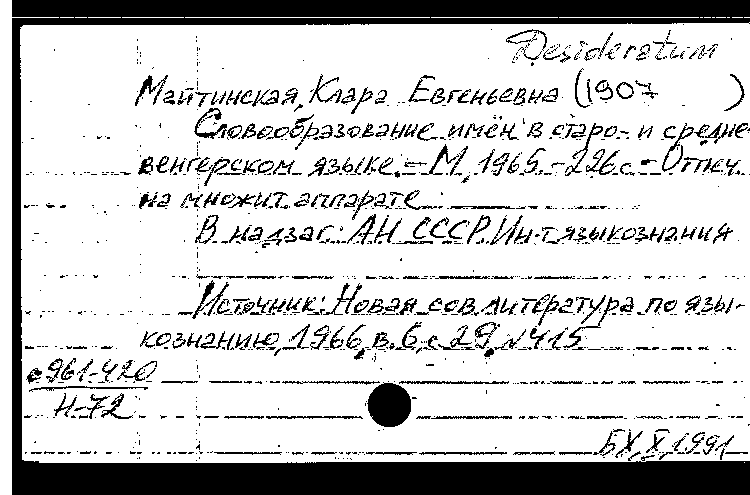 Desideratum
Майтинская, Клара Евгеньевна (1907 )
Словообразование имён в старо- и средне-
венгерском языке. - М., 1965. - 226 с. - Отпеч.
на множит. аппарате
В надзаг.: АН СССР. Ин-т языкознания
Источник: Новая сов. литература по язы-
кознанию, 1966, в. 6, с 29, №415
с961-420
Н-72
БХ, X, 1991